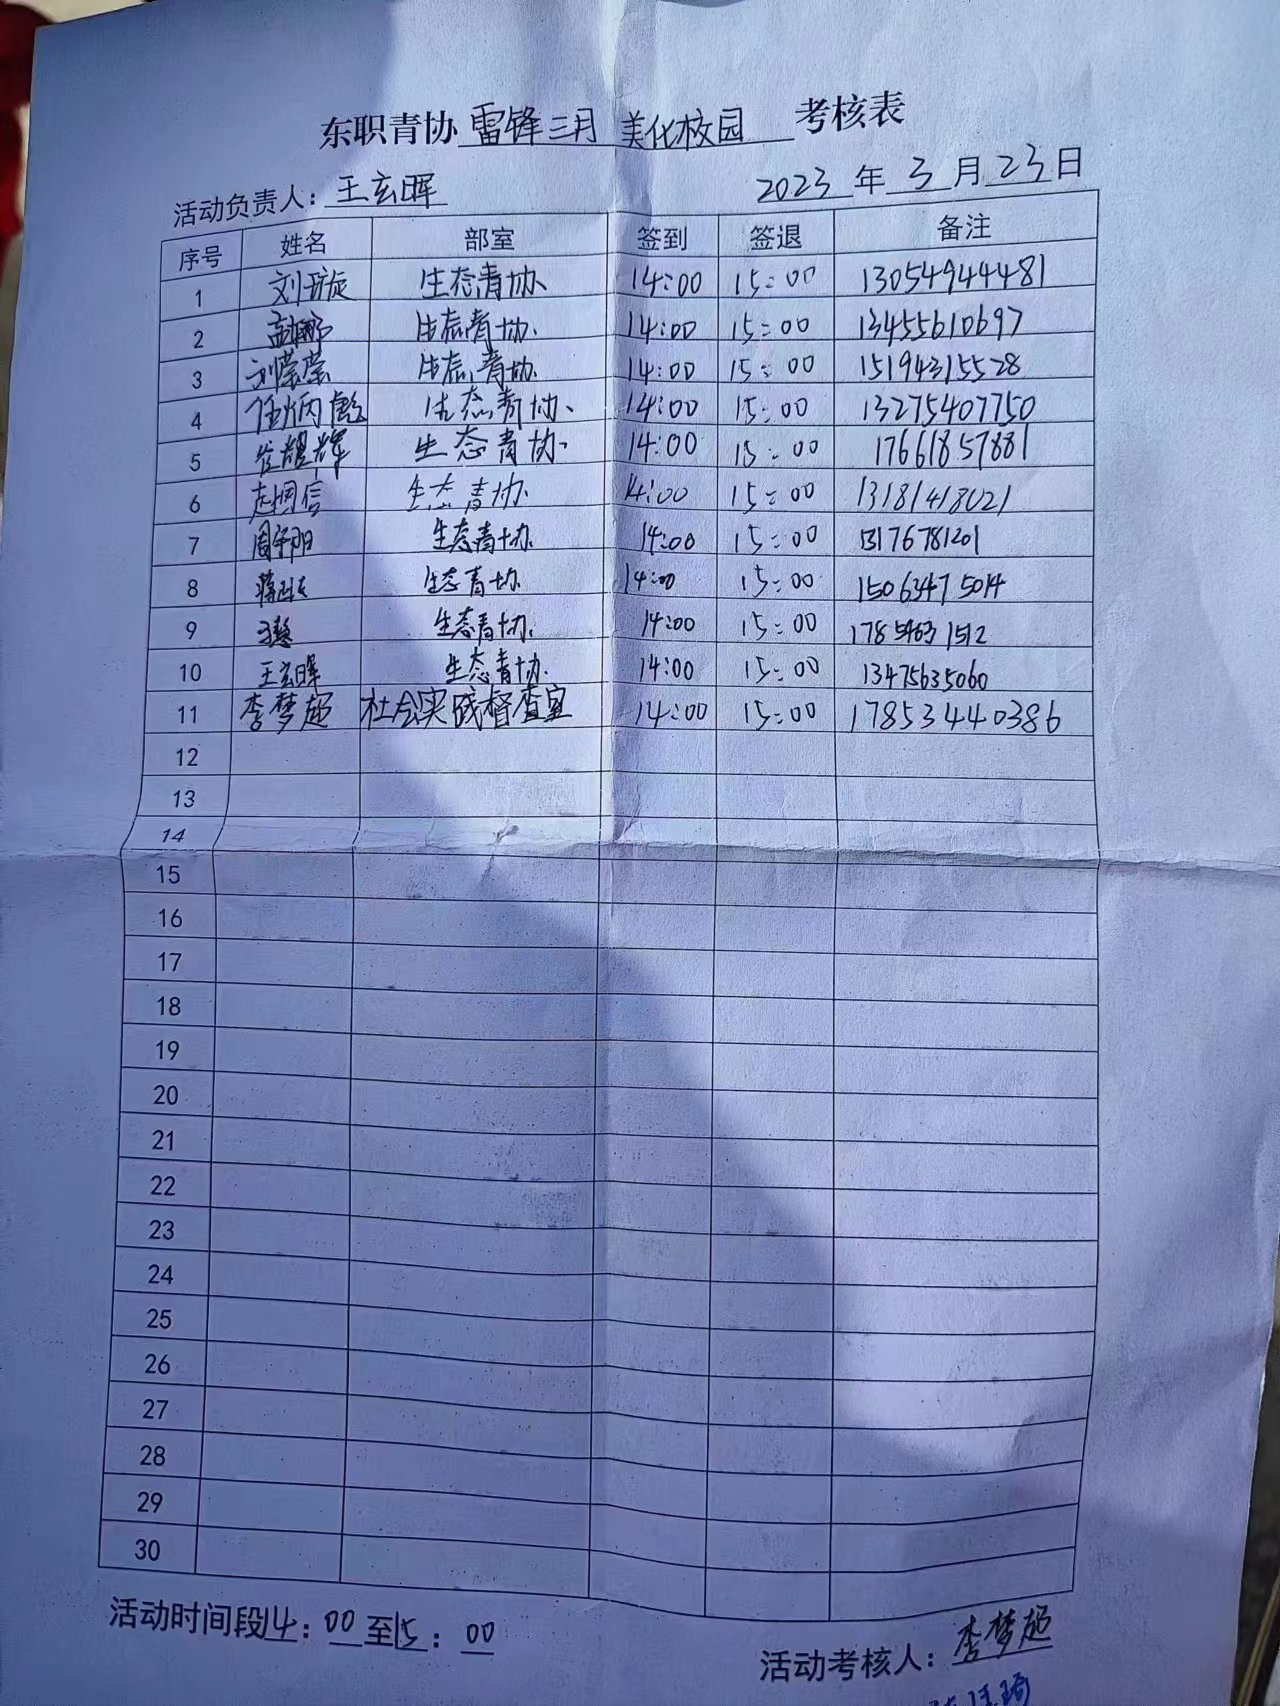 东职青协 雷锋三月 美化校园 考核表
活动负责人: 王玄晖 2023 年 3 月 23 日
序号 姓名 部室 签到 签退 备注
1 刘 生态青协 14:00 15:00 13054944481
2 孟娜 生态青协 14:00 15:00 13455610697
3 刘莹莹 生态青协 14:00 15:00 15194315528
4 任炳 生态青协 14:00 15:00 13275407750
5 耀辉 生态青协 14:00 15:00 17661857881
6 赵同信 生态青协 14:00 15:00 13181418021
7 周宇阳 生态青协 14:00 15:00 13176781201
8 蒋 生态青协 14:00 15:00 15063475014
9 生态青协 14:00 15:00 17854631512
10 王玄晖 生态青协 14:00 15:00 13475635060
11 李梦超 社会实践督查室 14:00 15:00 17853440386
12
13
14
15
16
17
18
19
20
21
22
23
24
25
26
27
28
29
30
活动时间段14:00至15:00
活动考核人: 李梦超